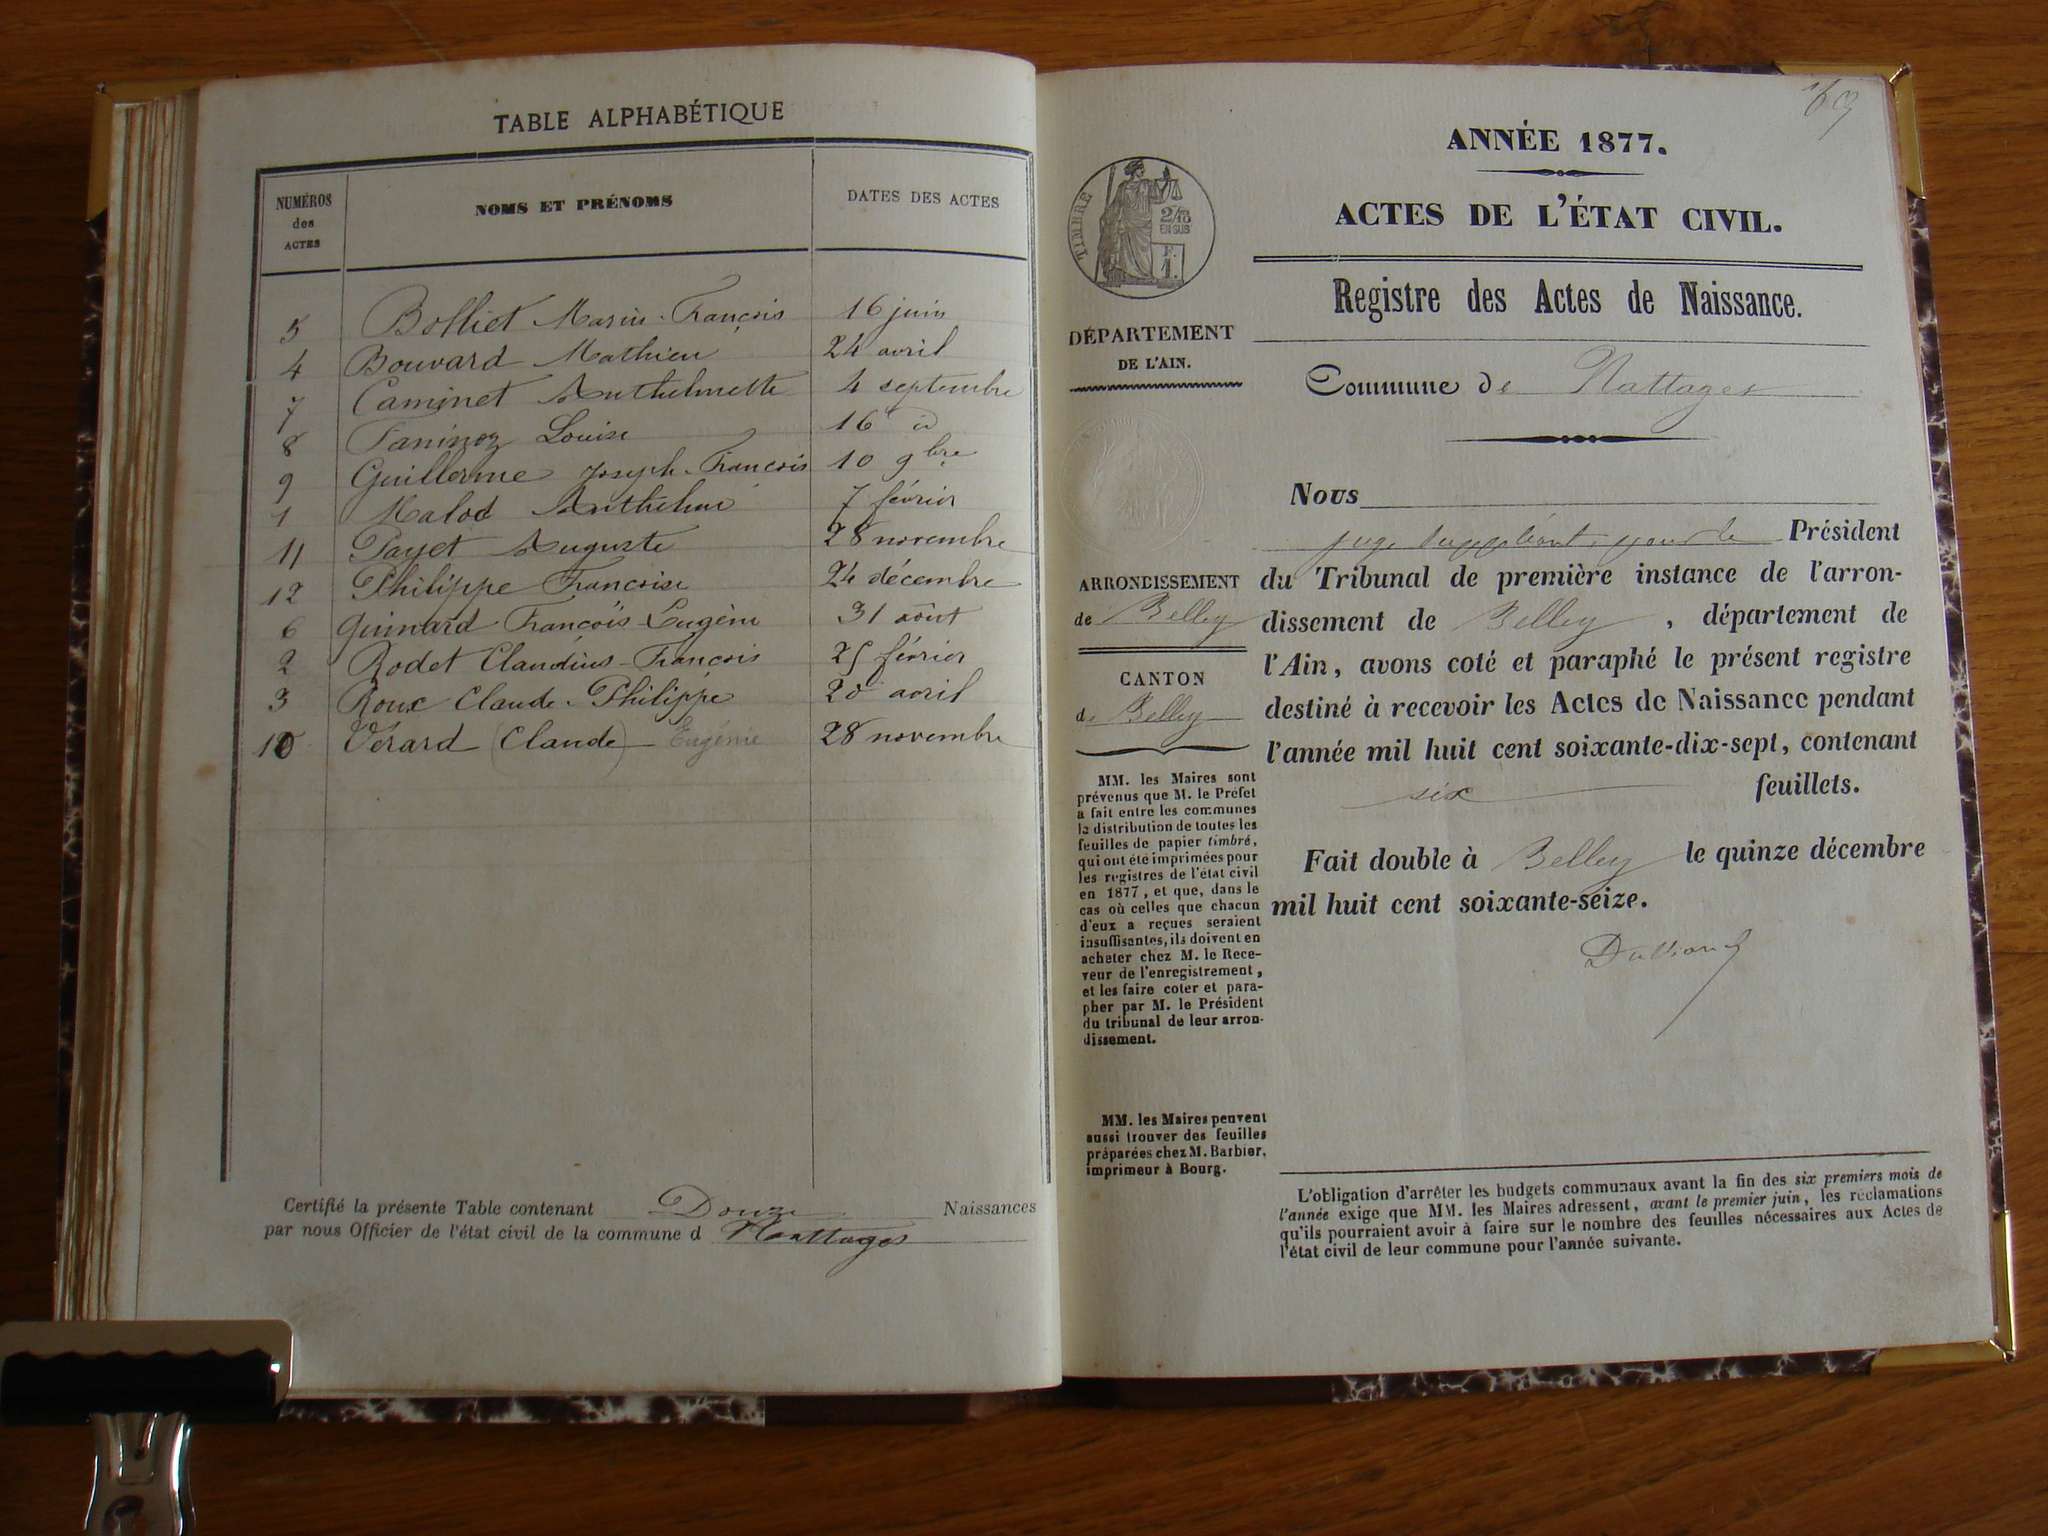 TABLE ALPHABÉTIQUE
NUMÉROS des ACTES NOMS ET PRÉNOMS DATES DES ACTES
5 Bolliet Marin-François 16 juin
4 Bouvard Mathieu 24 avril
7 Caminet Anthelmette 4 septembre
8 Faninoz Louise 16 id
9 Guillerme Joseph-François 10 9bre
1 Malod Anthelme 7 février
11 Payet Auguste 28 novembre
12 Philippe Françoise 24 décembre
6 Quinard François-Eugène 31 août
2 Rodet Claudius-François 25 février
3 Roux Claude-Philippe 20 avril
10 Vérard (Claude) Eugénie 28 novembre
Certifié la présente Table contenant Douze Naissances
par nous Officier de l'état civil de la commune d Nattages
169
ANNÉE 1877.
ACTES DE L'ÉTAT CIVIL.
TIMBRE
2/10
EN SUS
F.
1.
Registre des Actes de Naissance.
DÉPARTEMENT
DE L'AIN.
Commune de Nattages
Nous
juge suppléant, pour le Président
du Tribunal de première instance de l'arron-
dissement de Belley, département de
l'Ain, avons coté et paraphé le présent registre
destiné à recevoir les Actes de Naissance pendant
l'année mil huit cent soixante-dix-sept, contenant
six feuillets.
Fait double à Belley le quinze décembre
mil huit cent soixante-seize.
ARRONDISSEMENT
de Belley
CANTON
de Belley
MM. les Maires sont
prévenus que M. le Préfet
a fait entre les communes
la distribution de toutes les
feuilles de papier timbré,
qui ont été imprimées pour
les registres de l'état civil
en 1877, et que, dans le
cas où celles que chacun
d'eux a reçues seraient
insuffisantes, ils doivent en
acheter chez M. le Rece-
veur de l'enregistrement,
et les faire coter et para-
pher par M. le Président
du tribunal de leur arron-
dissement.
MM. les Maires peuvent
aussi trouver des feuilles
préparées chez M. Barbier,
imprimeur à Bourg.
L'obligation d'arrêter les budgets communaux avant la fin des six premiers mois de
l'année exige que MM. les Maires adressent, avant le premier juin, les réclamations
qu'ils pourraient avoir à faire sur le nombre des feuilles nécessaires aux Actes de
l'état civil de leur commune pour l'année suivante.